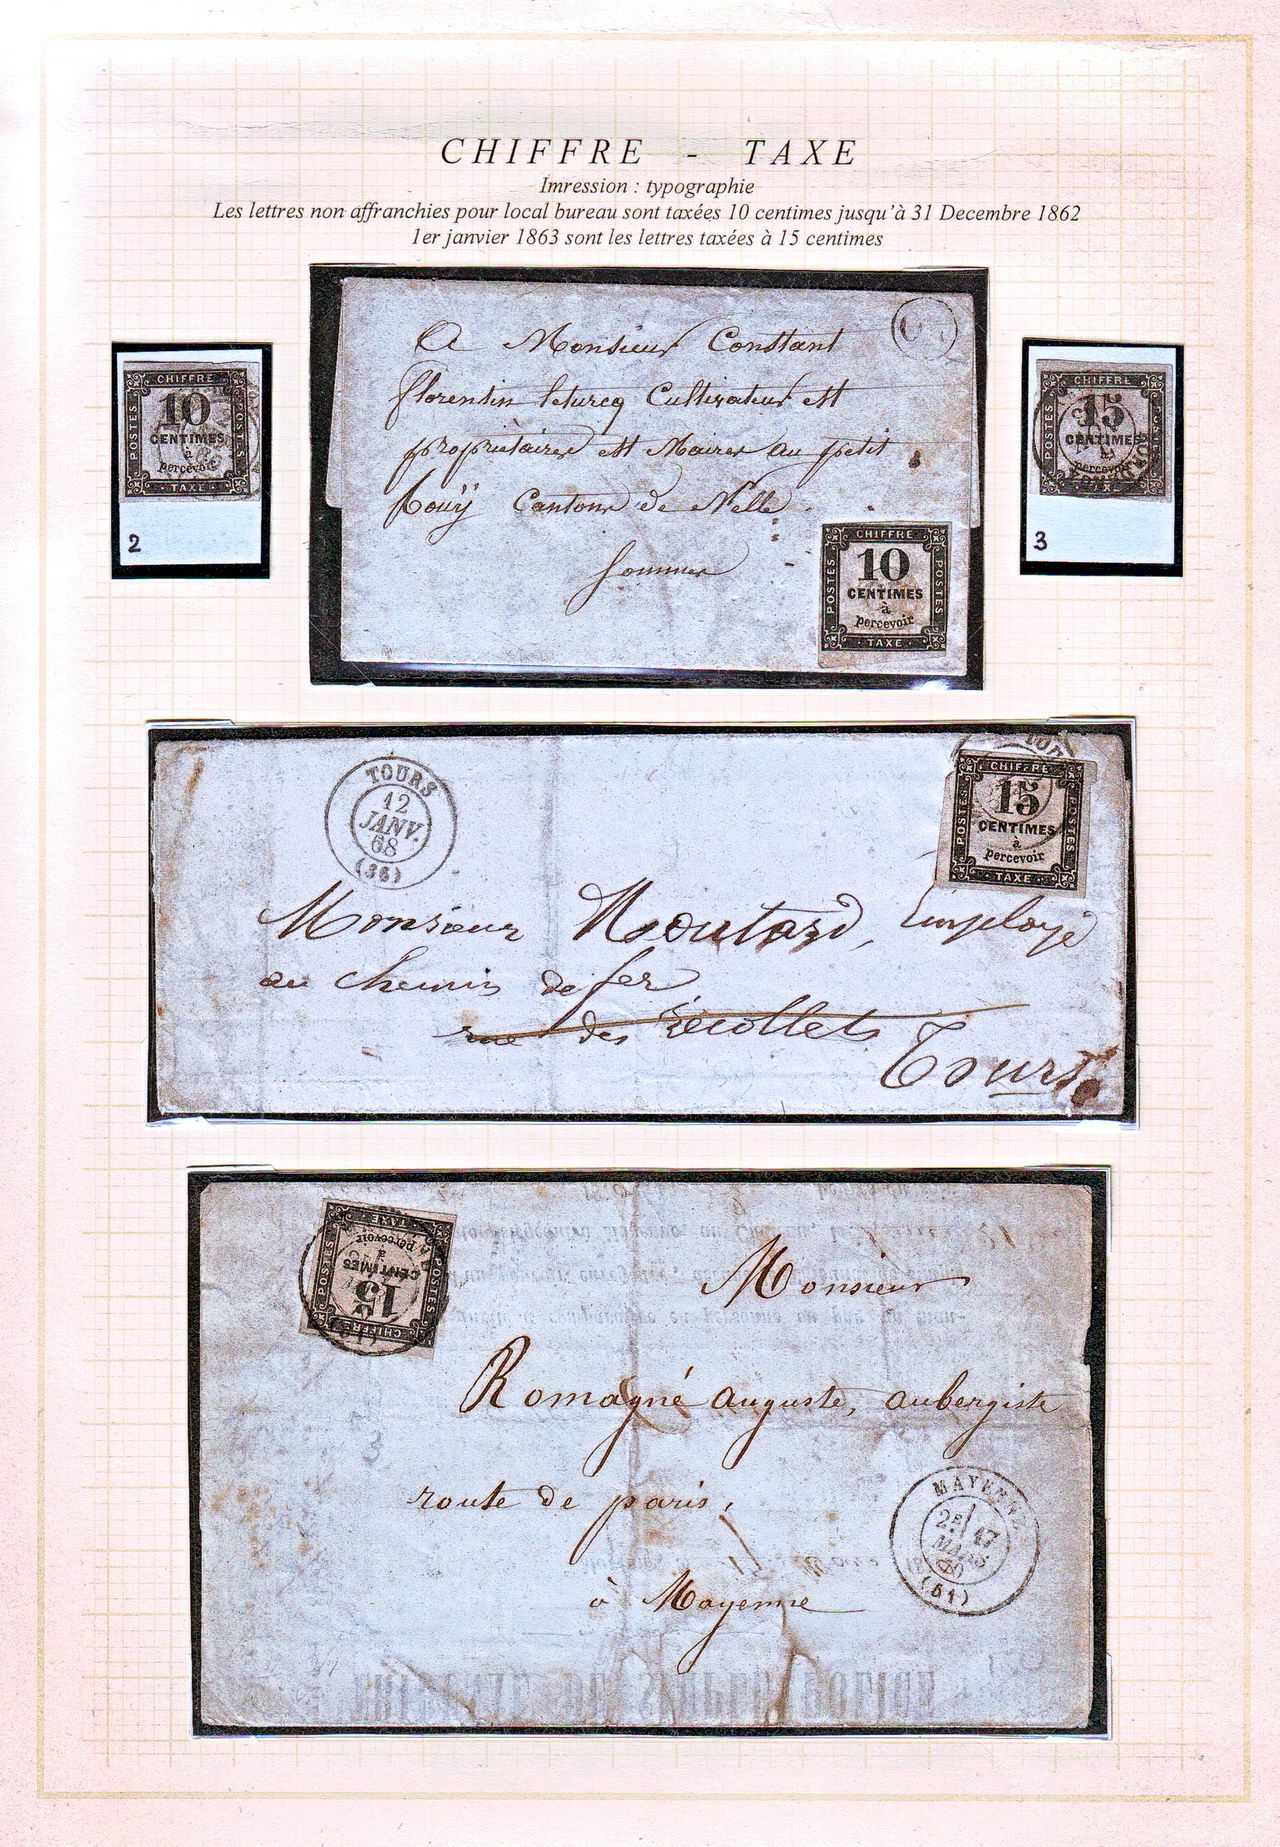 CHIFFRE - TAXE
Imression : typographie
Les lettres non affranchies pour local bureau sont taxées 10 centimes jusqu'à 31 Decembre 1862
1er janvier 1863 sont les lettres taxées à 15 centimes
CHIFFRE
POSTES
10
CENTIMES
à
percevoir
POSTES
TAXE
2
A Monsieur Constant
florentin leturcq Cultivateur et
propriètaire et Maire au petit
Canton de Nelle
Somme
CHIFFRE
POSTES
10
CENTIMES
à
percevoir
POSTES
TAXE
CHIFFRE
POSTES
15
CENTIMES
percevoir
TAXE
3
TOURS
12
JANV.
68
(36)
TOURS
CHIFFRE
POSTES
15
CENTIMES
à
percevoir
POSTES
TAXE
Monsieur Moutard, Employé
au chemin de fer
rue des Récollets
Tours
CHIFFRE
POSTES
15
CENTIMES
à
percevoir
POSTES
TAXE
Monsieur
Romagné auguste, aubergiste
route de paris,
à Mayenne
MAYENNE
2E 17
MARS
(51)